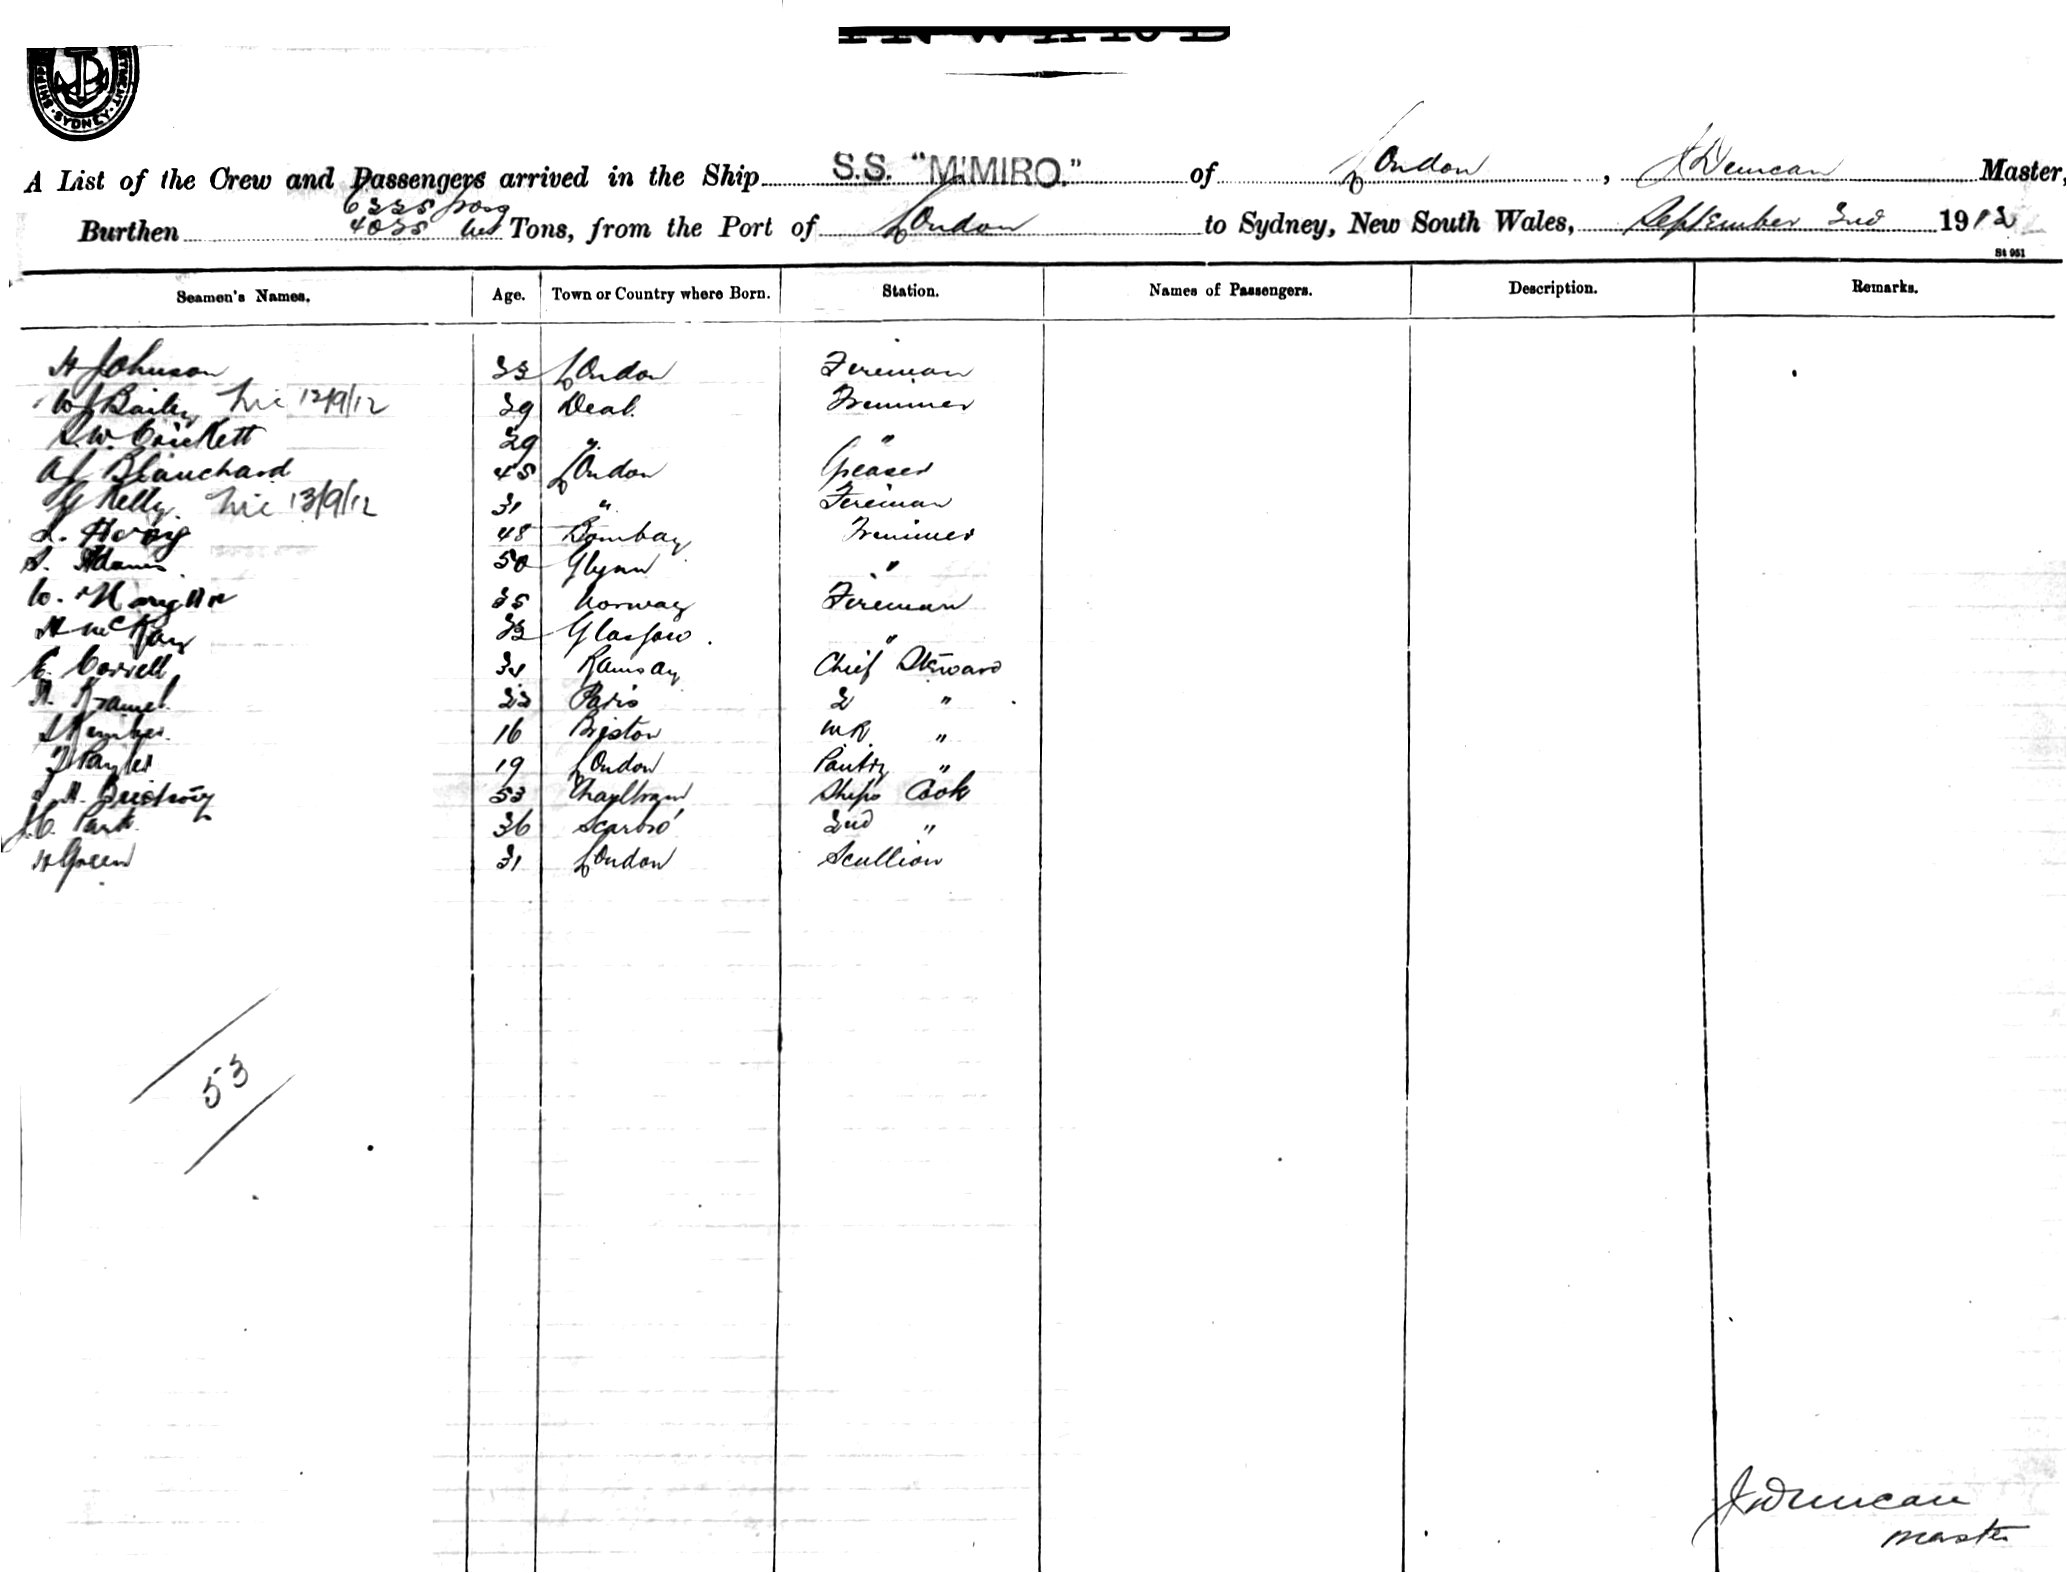 INWARD
SYDNEY
A List of the Crew and Passengers arrived in the Ship S.S. "M'MIRO." of London, J Duncan Master,
6225 gross
Burthen 4035 net Tons, from the Port of London to Sydney, New South Wales, September 2nd 1912
St 951
Seamen's Names. Age. Town or Country where Born. Station. Names of Passengers. Description. Remarks.
H Johnson 33 London Fireman
W J Bailey 12/9/12 39 Deal Trimmer
W. Crickett 29 " "
A J Blanchard 45 London Greaser
Kelly 13/9/12 31 " Fireman
48 Bombay Trimmer
S. Adams 50 Glynn "
W. 35 Norway Fireman
H McKay 32 Glasgow. "
E. Correll 34 Ramsay Chief Steward
H. Kramel 23 Paris 2 "
Kimber. 16 Brixton M.R. "
19 London Pantry "
H. 53 Ships Cook
J.C. Park 36 Scarboro' 2nd "
H Green 31 London Scullion
53
J Duncan
Master